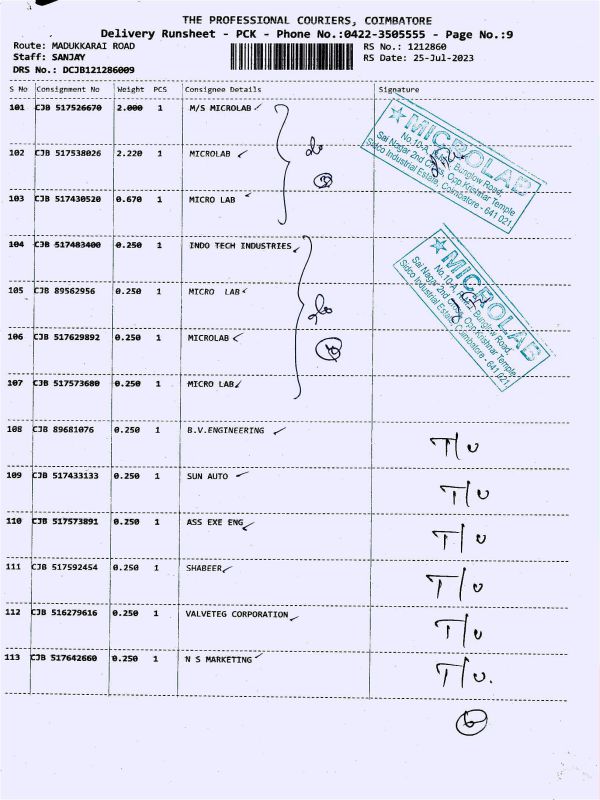 THE PROFESSIONAL COURIERS, COIMBATORE
Delivery Runsheet - PCK - Phone No.:0422-3505555 - Page No.:9
Route: MADUKKARAI ROAD
RS No.: 1212860
Staff: SANJAY
RS Date: 25-Jul-2023
DRS No.: DCJB121286009
S No Consignment No Weight PCS Consignee Details Signature
101 CJB 517526670 2.000 1 M/S MICROLAB
102 CJB 517538026 2.220 1 MICROLAB
103 CJB 517430520 0.670 1 MICRO LAB
104 CJB 517483400 0.250 1 INDO TECH INDUSTRIES
105 CJB 89562956 0.250 1 MICRO LAB
106 CJB 517629892 0.250 1 MICROLAB
107 CJB 517573680 0.250 1 MICRO LAB
MICROLAB
No.10-A, Bunglow Road,
Sai Nagar 2nd Cross, Opp.Krishnar Temple
Sidco Industrial Estate, Coimbatore - 641 021
MICROLAB
No.10-A, Bunglow Road,
Sai Nagar 2nd Cross, Opp.Krishnar Temple
Sidco Industrial Estate, Coimbatore - 641 021
108 CJB 89681076 0.250 1 B.V.ENGINEERING T/U
109 CJB 517433133 0.250 1 SUN AUTO T/U
110 CJB 517573891 0.250 1 ASS EXE ENG T/U
111 CJB 517592454 0.250 1 SHABEER T/U
112 CJB 516279616 0.250 1 VALVETEG CORPORATION T/U
113 CJB 517642660 0.250 1 N S MARKETING T/U.
6